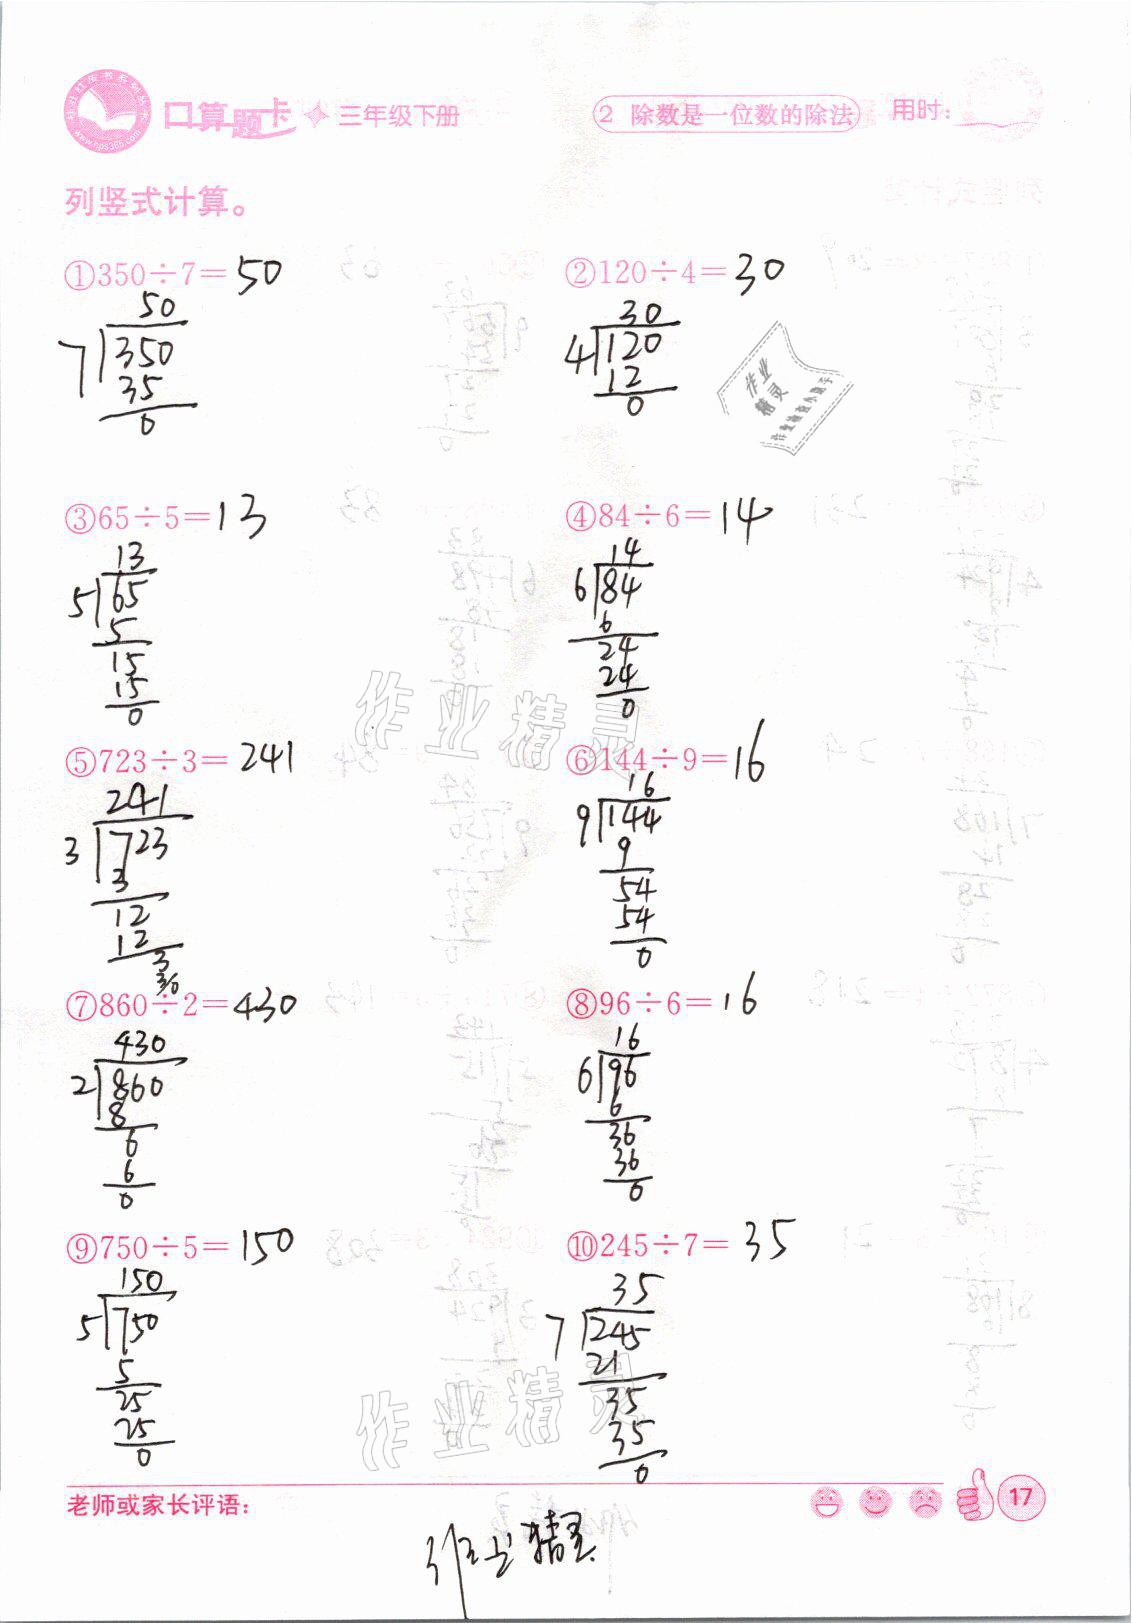 口算题卡 三年级下册
2 除数是一位数的除法
用时:
www.hps365.com
列竖式计算。
①350÷7=50
50
7 350
35
0
②120÷4=30
30
4 120
12
0
作业
精灵
③65÷5=13
13
5 65
5
15
15
0
④84÷6=14
14
6 84
6
24
24
0
作业精灵
⑤723÷3=241
241
3 723
3
12
12
3
3
0
⑥144÷9=16
16
9 144
9
54
54
0
⑦860÷2=430
430
2 860
8
6
6
0
⑧96÷6=16
16
6 96
6
36
36
0
⑨750÷5=150
150
5 750
5
25
25
0
⑩245÷7=35
35
7 245
21
35
35
0
作业精灵
老师或家长评语:
17